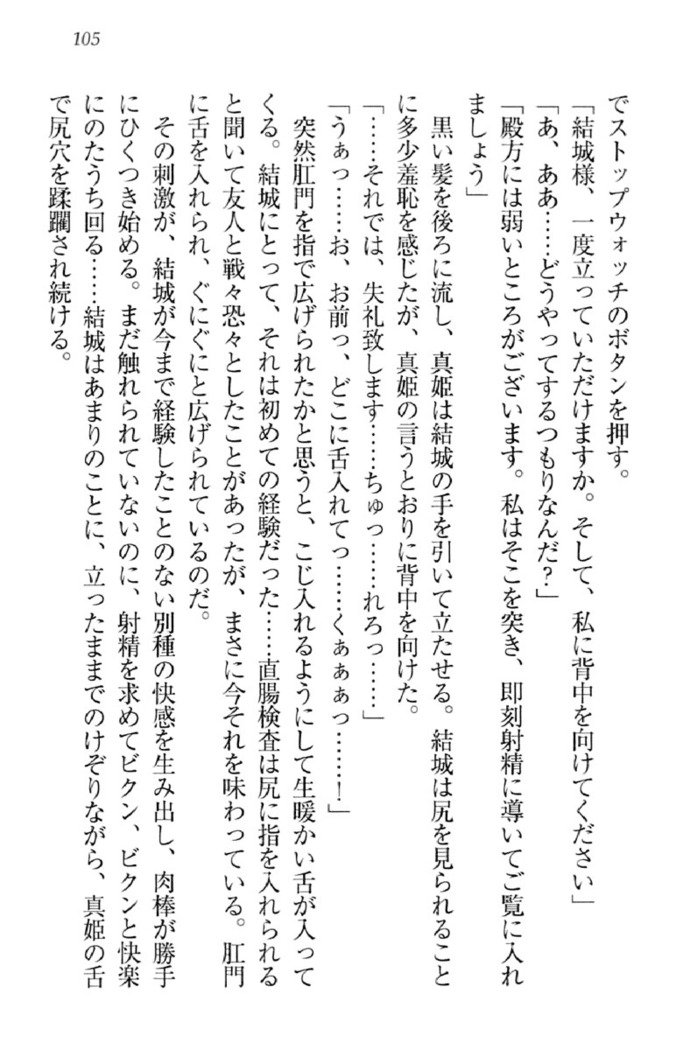 105
でストップウォッチのボタンを押す。
「結城様、一度立っていただけますか。そして、私に背中を向けてください」
「あ、ああ……どうやってするつもりなんだ？」
「殿方には弱いところがございます。私はそこを突き、即刻射精に導いてご覧に入れ
ましょう」
黒い髪を後ろに流し、真姫は結城の手を引いて立たせる。結城は尻を見られること
に多少羞恥を感じたが、真姫の言うとおりに背中を向けた。
「……それでは、失礼致します……ちゅっ……れろっ……」
「うぁっ……お、お前っ、どこに舌入れてっ……くぁぁぁっ……！」
突然肛門を指で広げられたかと思うと、こじ入れるようにして生暖かい舌が入って
くる。結城にとって、それは初めての経験だった……直腸検査は尻に指を入れられる
と聞いて友人と戦々恐々としたことがあったが、まさに今それを味わっている。肛門
に舌を入れられ、ぐにぐにと広げられているのだ。
その刺激が、結城が今まで経験したことのない別種の快感を生み出し、肉棒が勝手
にひくつき始める。まだ触れられていないのに、射精を求めてビクン、ビクンと快楽
にのたうち回る……結城はあまりのことに、立ったままでのけぞりながら、真姫の舌
で尻穴を蹂躙され続ける。